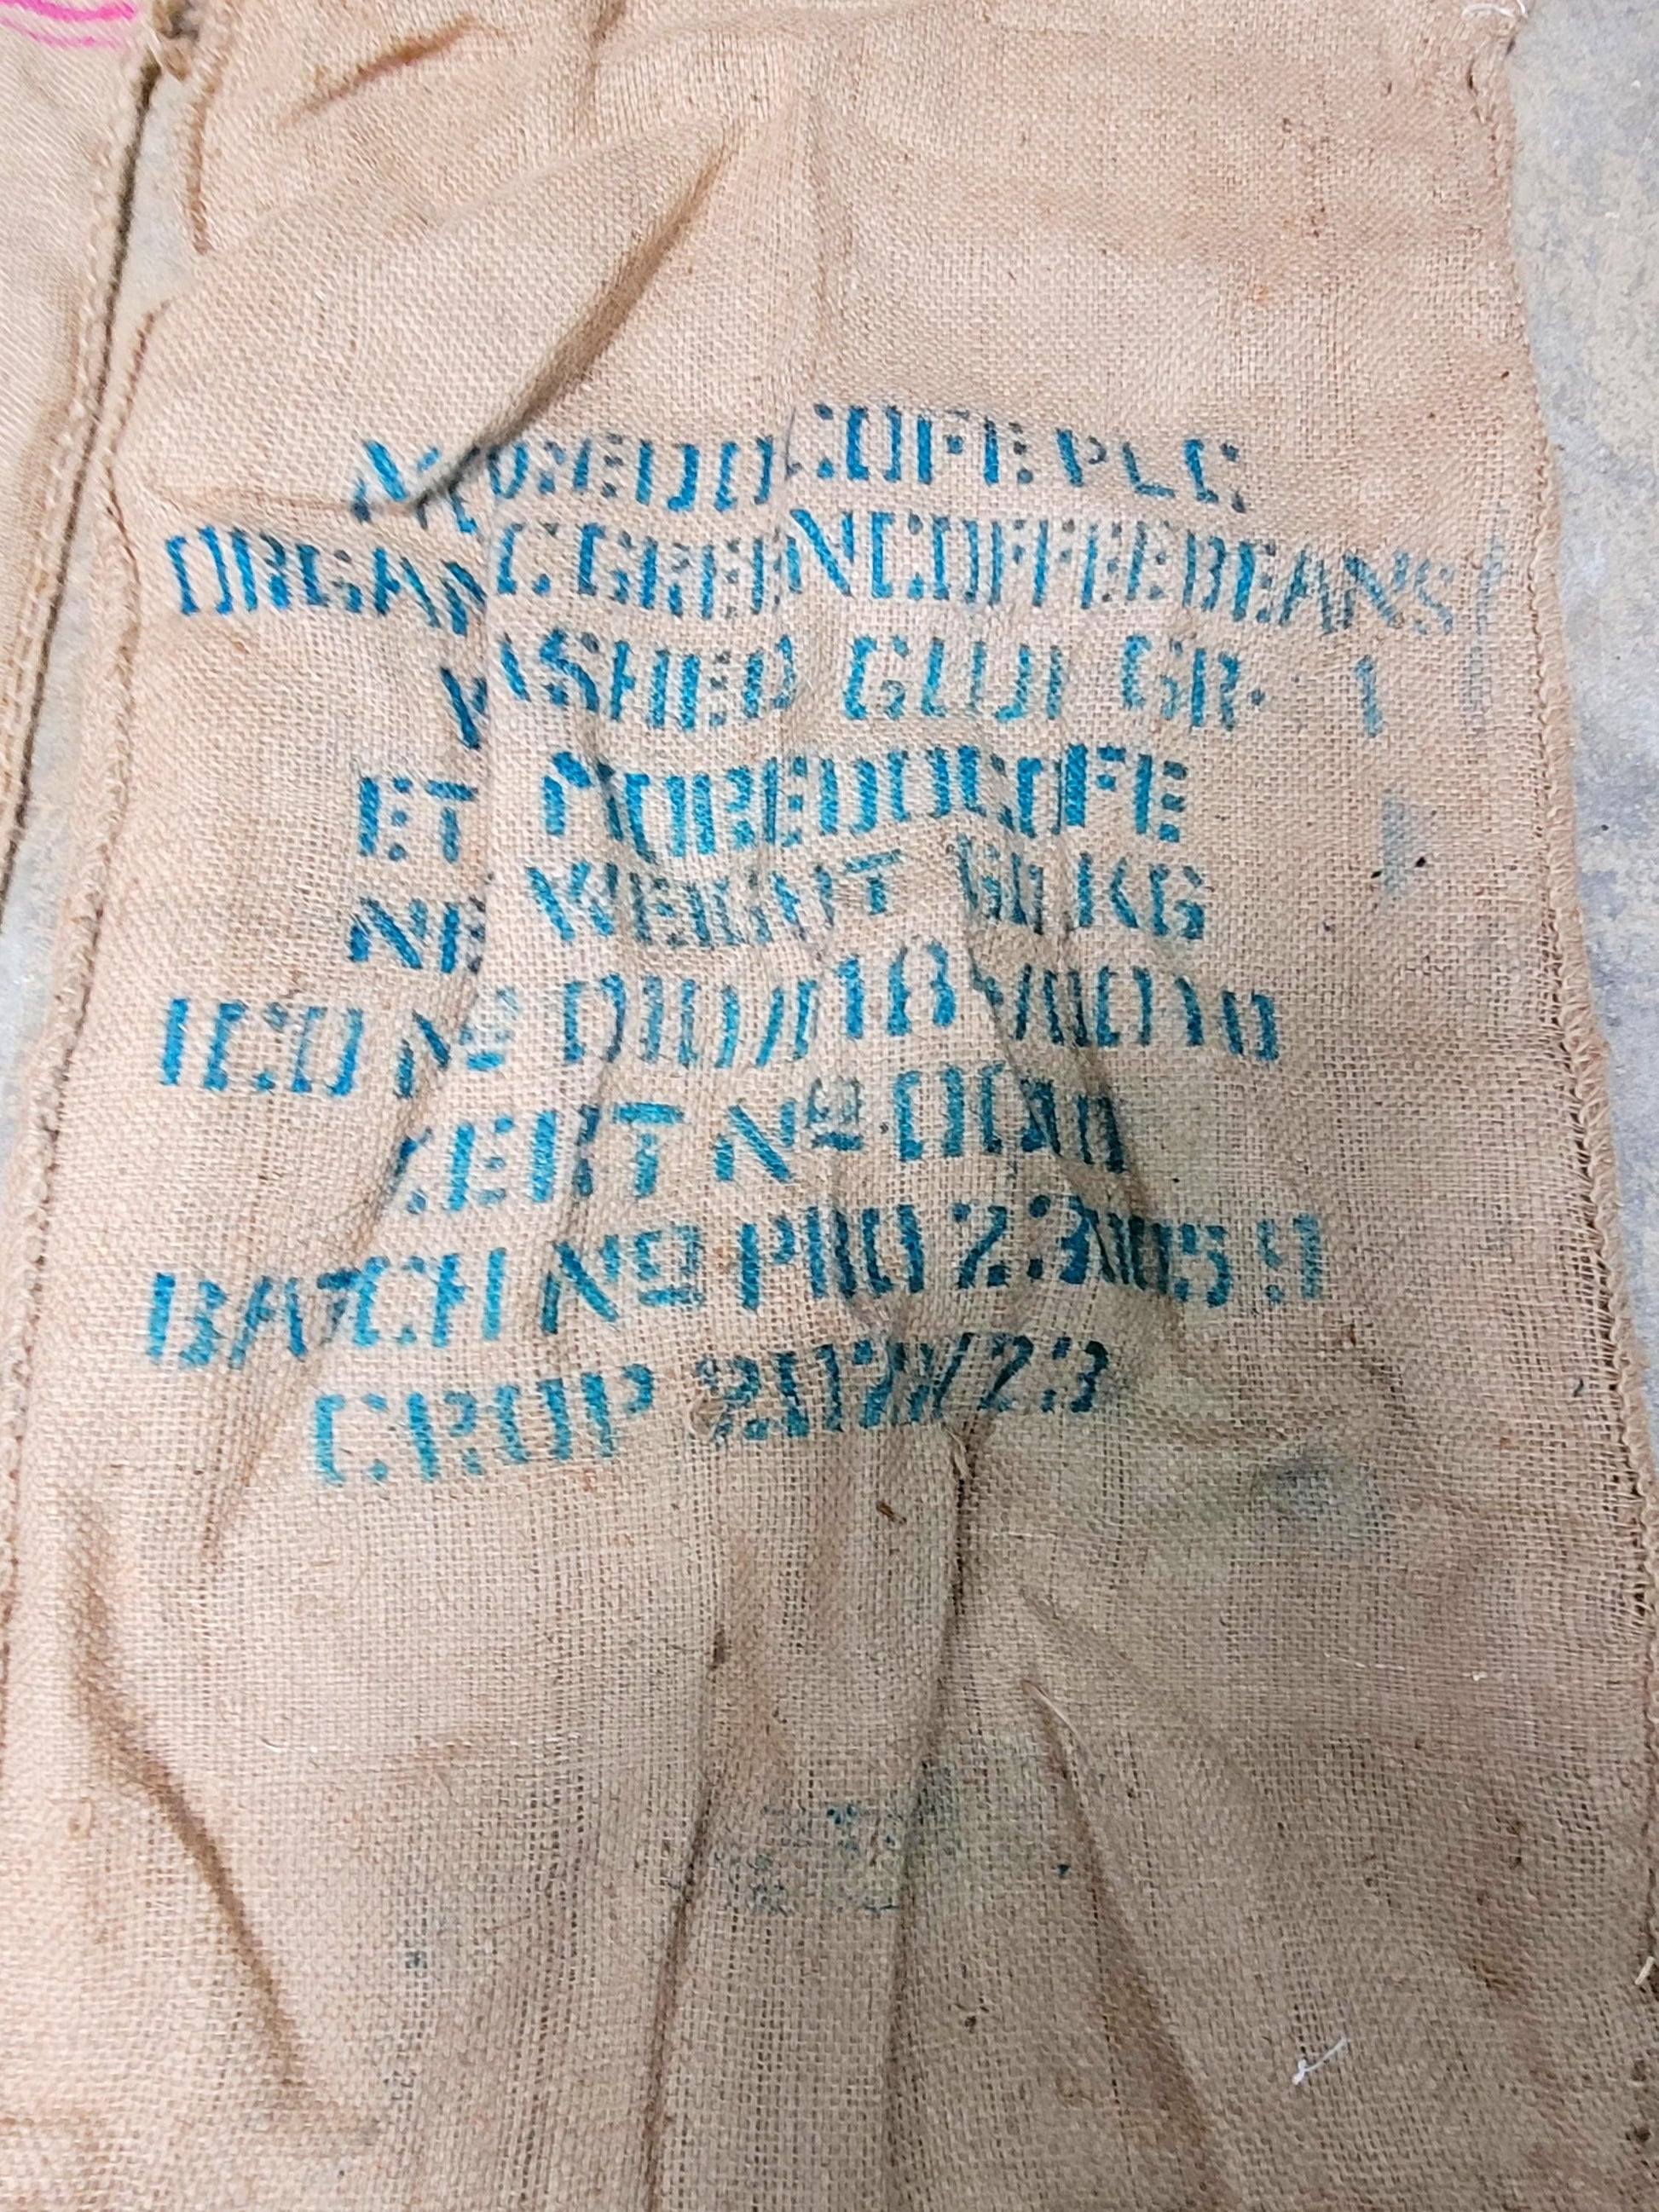 MOREDOCOFE PLC
ORGANIC GREEN COFFEE BEANS
WASHED GUJI GR- 1
ET MOREDOCOFE
NET WEIGHT 60 KG
ICO Nº 010/18
CERT Nº
BATCH Nº PRO 23
CROP 2022/23